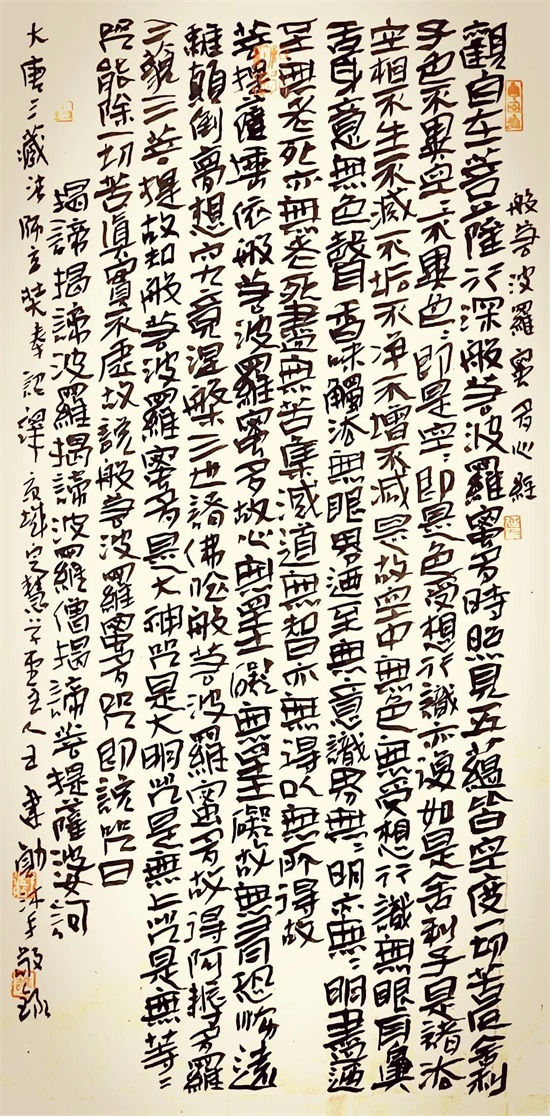 般若波羅蜜多心經
觀自在菩薩行深般若波羅蜜多時照見五蘊皆空度一切苦厄舍利
子色不異空〻不異色〻即是空〻即是色受想行識亦復如是舍利子是諸法
空相不生不滅不垢不净不增不減是故空中無色無受想行識無眼耳鼻
舌身意無色聲香味觸法無眼界迺至無〻意識界無〻明亦無〻明盡迺
至無老死亦無老死盡無苦集滅道無智亦無得以無所得故
菩提薩埵依般若波羅蜜多故心無罣礙無罣礙故無有恐怖遠
離顛倒夢想究竟涅槃三世諸佛依般若波羅蜜多故得阿耨多羅
三藐三菩提故知般若波羅蜜多是大神咒是大明咒是無上咒是無等〻
咒能除一切苦真實不虛故說般若波羅蜜多咒即說咒曰
揭諦揭諦波羅揭諦波羅僧揭諦菩提薩婆訶
大唐三藏法師玄奘奉詔譯京城定慧主人王建勛沐手敬録